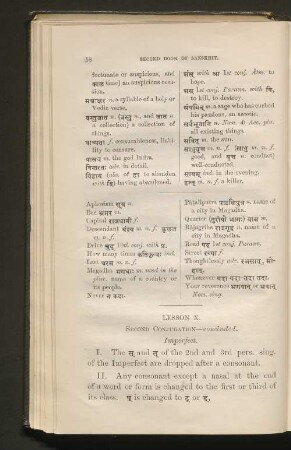 SECOND BOOK OF SANSKRIT.
fortunate or auspicious, and
काल time) an auspicious
m. a syllable of a holy or
Vedic verse.
n. (वस्तु n. and जात n.
a collection) a collection of
things.
f. censurableness, liabi-
lity to censure.
m. the god Indra.
adv. in detail.
(abs. of हा to abandon
with वि) having abandoned.
with आ 1st conj. Atm. to
hope.
1st conj. Parasm. with वि,
to kill, to destroy.
m. a sage who has curbed
his passions, an ascetic.
n. Nom. & Acc. plu.
all existing things.
m. the sun.
n. m. f.
good, and वृत्त n. conduct)
well-conducted.
सायम् ind. in the evening.
हन्तृ m. n. f. a killer.
Aphorism सूत्र n.
Bee भ्रमर m.
Capital राजधानी f.
Descendant वंशज m. n. f. कुलज
m. n. f.
Drive नुद् 1nd. conj. with प्र.
How many times कतिकृत्वः ind.
Last चरम m. n. f.
Magadha मगधाः m. used in the
plur. name of a country or
its people.
Never न कदा.
Pâṭaliputra पाटलिपुत्र n. name of
a city in Magadha.
Quarter (तुरीयो भागः) पाद m.
Râjagṛiha राजगृह n. name of a
city in Magadha.
Read पठ् 1st conj. Parasm.
Street रथ्या f.
Whenever यदा यदा-तदा तदा.
Your reverence भवान् m. भवत्
Nom. sing.
LESSON X.
SECOND CONJUGATION—concluded.
Imperfect.
I. The स् and त् of the 2nd and 3rd pers. sing.
of the Imperfect are dropped after a consonant.
II. Any consonant except a nasal at the end
of a word or form is changed to the first or third of
its class. ष् is changed to ट् or ड्.